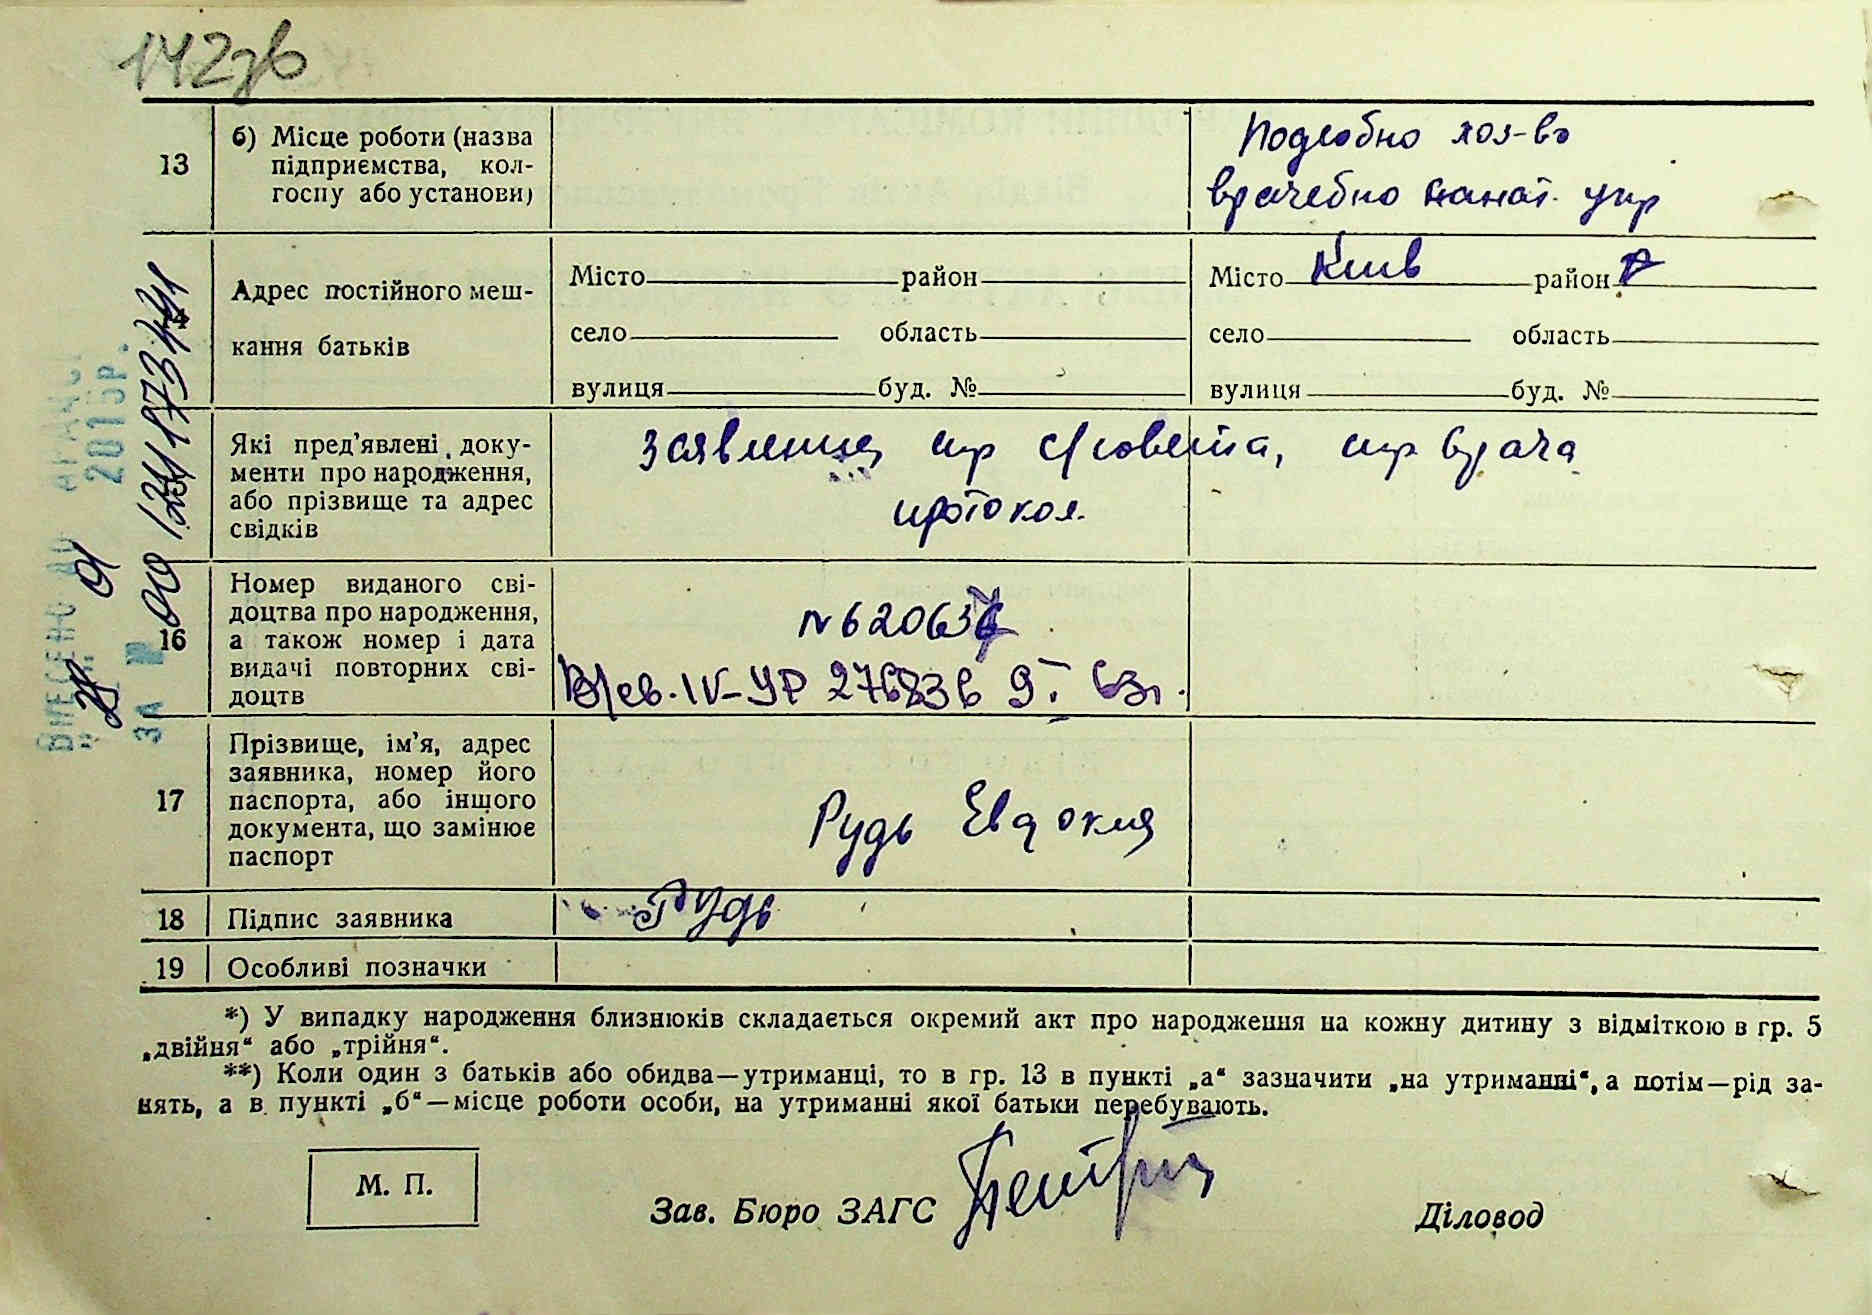 142зв
13
б) Місце роботи (назва
підприємства, кол-
госпу або установи)
Подсобно хоз-во
врачебно санат. упр
Адрес постійного меш-
кання батьків
Місто район
село область
вулиця буд. №
Місто Киів район
село область
вулиця буд. №
Які пред'явлені доку-
менти про народження,
або прізвище та адрес
свідків
заявление, спр с/совета, спр врача
протокол.
16
Номер виданого сві-
доцтва про народження,
а також номер і дата
видачі повторних сві-
доцтв
IV-УР 276836 9. I 63г.
17
Прізвище, ім'я, адрес
заявника, номер його
паспорта, або іншого
документа, що замінює
паспорт
Рудь Евдокия
18
Підпис заявника
Рудь
19
Особливі позначки
*) У випадку народження близнюків складається окремий акт про народження на кожну дитину з відміткою в гр. 5
„двійня“ або „трійня“.
**) Коли один з батьків або обидва—утриманці, то в гр. 13 в пункті „а“ зазначити „на утриманні“, а потім—рід за-
нять, а в пункті „б“—місце роботи особи, на утриманні якої батьки перебувають.
М. П.
Зав. Бюро ЗАГС
Діловод
ВНЕСЕНО ДО
2015р.
ЗА №